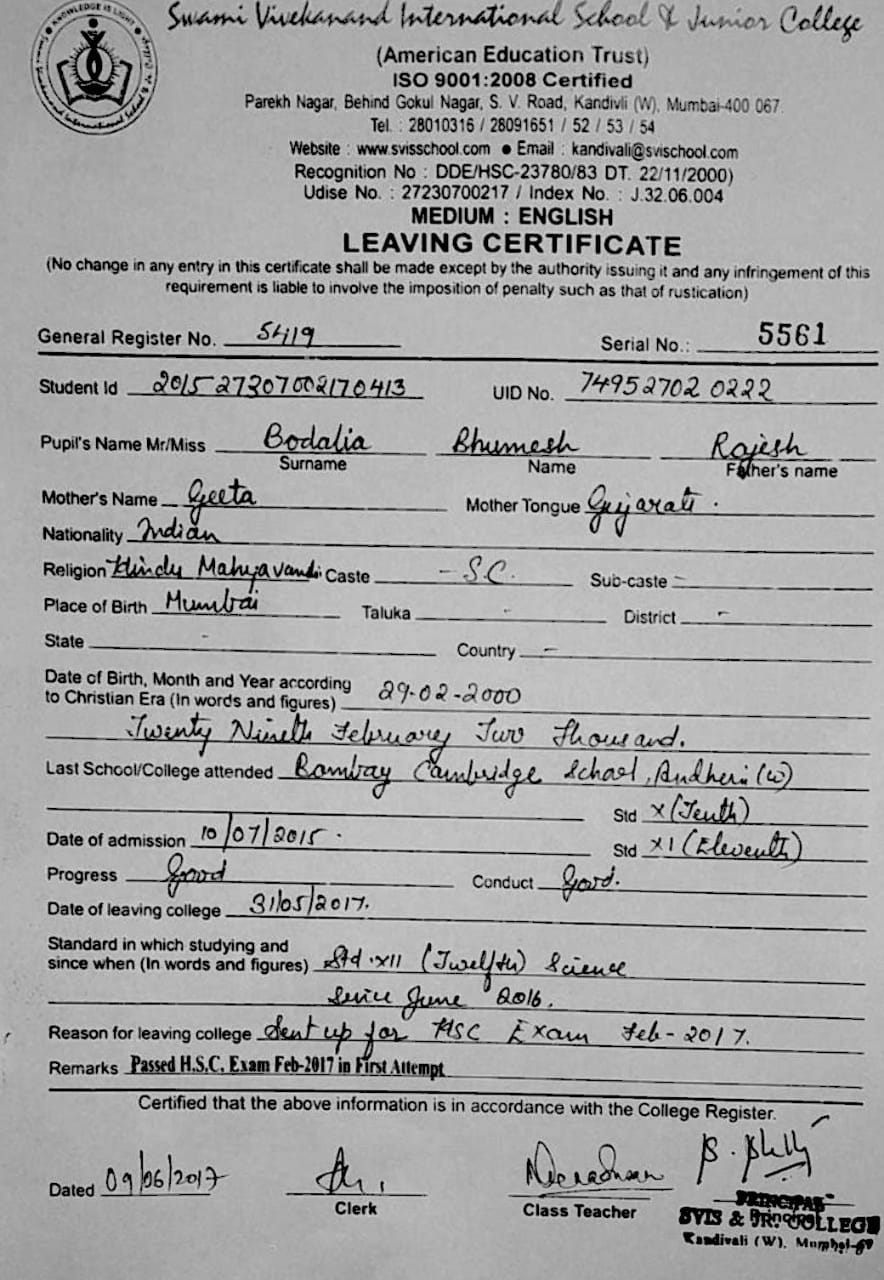 KNOWLEDGE IS LIGHT
Swami Vivekanand International School & Junior College
(American Education Trust)
ISO 9001:2008 Certified
Parekh Nagar, Behind Gokul Nagar, S. V. Road, Kandivli (W), Mumbai-400 067.
Tel. : 28010316 / 28091651 / 52 / 53 / 54
Website : www.svisschool.com ● Email : kandivali@svischool.com
Recognition No : DDE/HSC-23780/83 DT. 22/11/2000)
Udise No. : 27230700217 / Index No. : J.32.06.004
MEDIUM : ENGLISH
LEAVING CERTIFICATE
(No change in any entry in this certificate shall be made except by the authority issuing it and any infringement of this
requirement is liable to involve the imposition of penalty such as that of rustication)
General Register No. 5419 Serial No.: 5561
Student Id 2015 27307002170413 UID No. 749527020222
Pupil's Name Mr/Miss Bodalia Bhumesh Rajesh
Surname Name Father's name
Mother's Name Geeta Mother Tongue Gujarati.
Nationality Indian
Religion Hindu Mahyavanshi Caste - S.C. Sub-caste -
Place of Birth Mumbai Taluka - District -
State - Country -
Date of Birth, Month and Year according
to Christian Era (In words and figures) 29-02-2000
Twenty Nineth February Two Thousand.
Last School/College attended Bombay Cambridge School, Andheri (W)
Std X (Tenth)
Date of admission 10/07/2015. Std XI (Eleventh)
Progress Good Conduct Good.
Date of leaving college 31/05/2017.
Standard in which studying and
since when (In words and figures) Std. XII (Twelfth) Science
Since June 2016.
Reason for leaving college Sent up for HSC Exam Feb-2017.
Remarks Passed H.S.C. Exam Feb-2017 in First Attempt
Certified that the above information is in accordance with the College Register.
Dated 09/06/2017
Clerk Class Teacher Principal
PRINCIPAL
SVIS & JR. COLLEGE
Kandivali (W), Mumbai-67